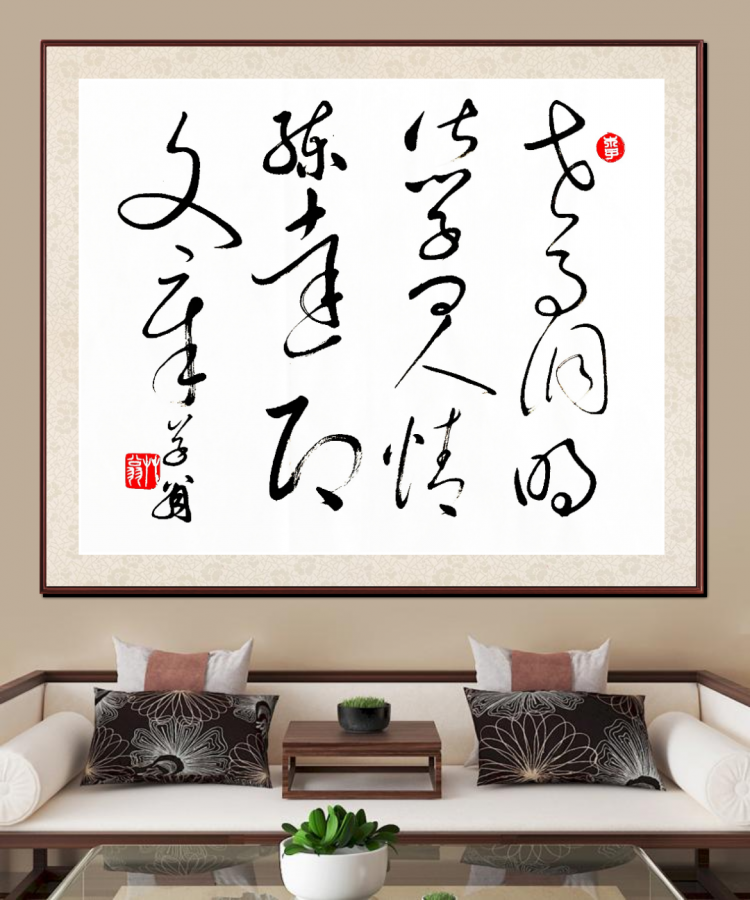 世事洞明
皆学问人情
练達即
文章
草翁